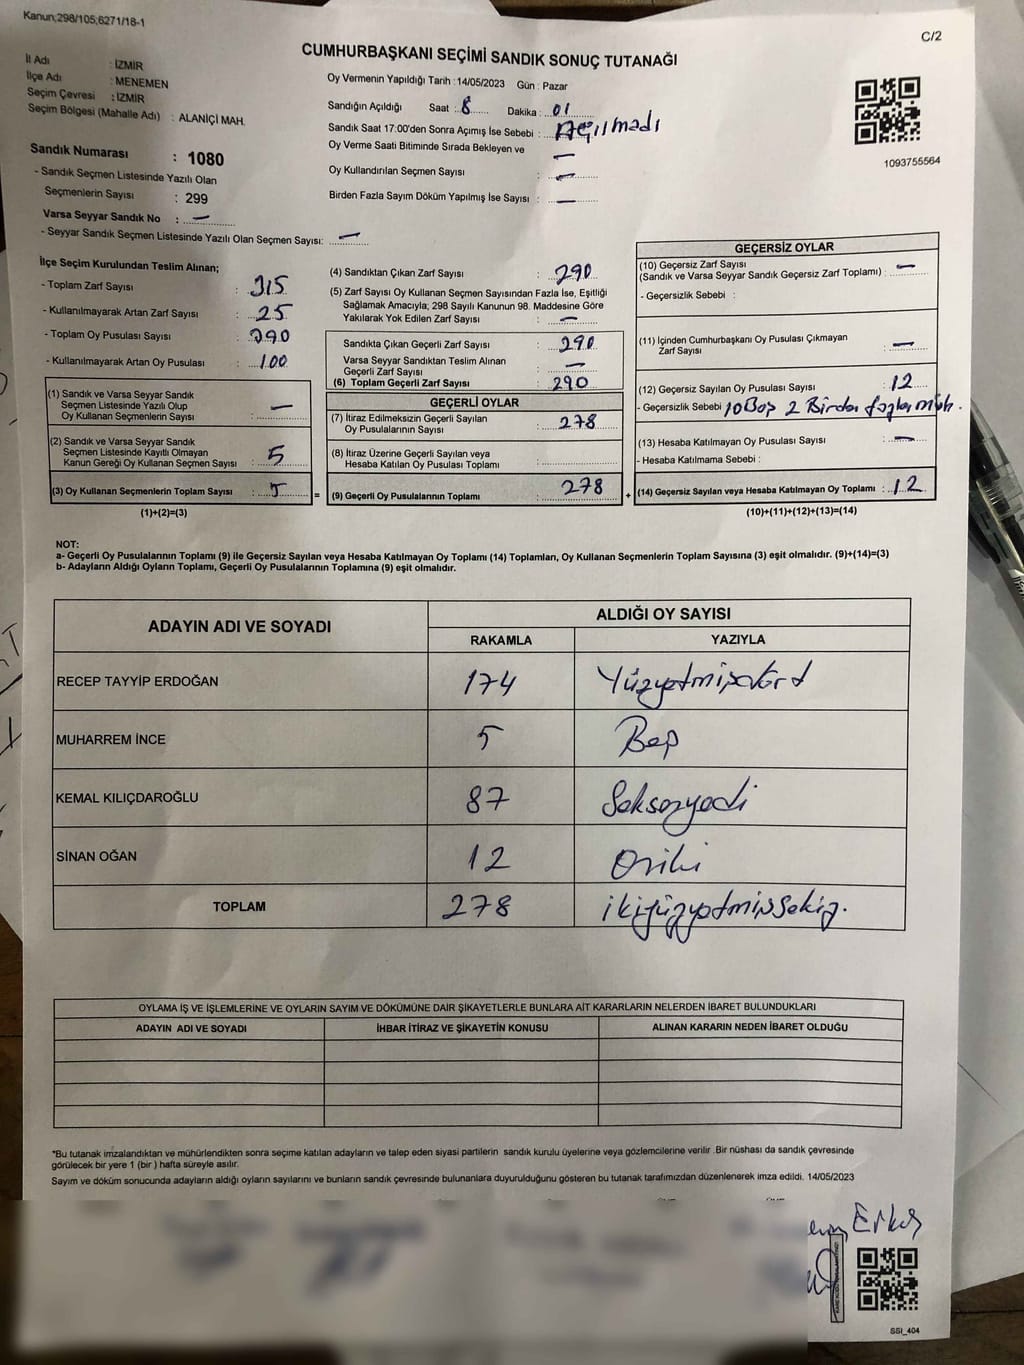 Kanun;298/105;6271/18-1
C/2
CUMHURBAŞKANI SEÇİMİ SANDIK SONUÇ TUTANAĞI
İl Adı : İZMİR
İlçe Adı : MENEMEN
Seçim Çevresi : İZMİR
Seçim Bölgesi (Mahalle Adı) : ALANİÇİ MAH.
Sandık Numarası : 1080
- Sandık Seçmen Listesinde Yazılı Olan
Seçmenlerin Sayısı : 299
Varsa Seyyar Sandık No : —
- Seyyar Sandık Seçmen Listesinde Yazılı Olan Seçmen Sayısı: —
Oy Vermenin Yapıldığı Tarih : 14/05/2023 Gün : Pazar
Sandığın Açıldığı Saat : 8 Dakika : 01
Sandık Saat 17:00'den Sonra Açımış İse Sebebi : Açılmadı
Oy Verme Saati Bitiminde Sırada Bekleyen ve —
Oy Kullandırılan Seçmen Sayısı : —
Birden Fazla Sayım Döküm Yapılmış İse Sayısı : —
1093755564
İlçe Seçim Kurulundan Teslim Alınan;
- Toplam Zarf Sayısı : 315
- Kullanılmayarak Artan Zarf Sayısı : 25
- Toplam Oy Pusulası Sayısı : 390
- Kullanılmayarak Artan Oy Pusulası : 100
(1) Sandık ve Varsa Seyyar Sandık
Seçmen Listesinde Yazılı Olup
Oy Kullanan Seçmenlerin Sayısı : —
(2) Sandık ve Varsa Seyyar Sandık
Seçmen Listesinde Kayıtlı Olmayan
Kanun Gereği Oy Kullanan Seçmen Sayısı : 5
(3) Oy Kullanan Seçmenlerin Toplam Sayısı : 5 =
(1)+(2)=(3)
(4) Sandıktan Çıkan Zarf Sayısı : 290
(5) Zarf Sayısı Oy Kullanan Seçmen Sayısından Fazla İse, Eşitliği
Sağlamak Amacıyla; 298 Sayılı Kanunun 98. Maddesine Göre
Yakılarak Yok Edilen Zarf Sayısı : —
Sandıkta Çıkan Geçerli Zarf Sayısı : 290
Varsa Seyyar Sandıktan Teslim Alınan
Geçerli Zarf Sayısı : —
(6) Toplam Geçerli Zarf Sayısı : 290
GEÇERLİ OYLAR
(7) İtiraz Edilmeksizin Geçerli Sayılan
Oy Pusulalarının Sayısı : 278
(8) İtiraz Üzerine Geçerli Sayılan veya
Hesaba Katılan Oy Pusulası Toplamı :
(9) Geçerli Oy Pusulalarının Toplamı : 278 +
GEÇERSİZ OYLAR
(10) Geçersiz Zarf Sayısı
(Sandık ve Varsa Seyyar Sandık Geçersiz Zarf Toplamı) : —
- Geçersizlik Sebebi :
(11) İçinden Cumhurbaşkanı Oy Pusulası Çıkmayan
Zarf Sayısı : —
(12) Geçersiz Sayılan Oy Pusulası Sayısı : 12
- Geçersizlik Sebebi : 10 Boş 2 Birden fazla müh.
(13) Hesaba Katılmayan Oy Pusulası Sayısı : —
- Hesaba Katılmama Sebebi :
(14) Geçersiz Sayılan veya Hesaba Katılmayan Oy Toplamı : 12
(10)+(11)+(12)+(13)=(14)
NOT:
a- Geçerli Oy Pusulalarının Toplamı (9) ile Geçersiz Sayılan veya Hesaba Katılmayan Oy Toplamı (14) Toplamları, Oy Kullanan Seçmenlerin Toplam Sayısına (3) eşit olmalıdır. (9)+(14)=(3)
b- Adayların Aldığı Oyların Toplamı, Geçerli Oy Pusulalarının Toplamına (9) eşit olmalıdır.
ADAYIN ADI VE SOYADI
ALDIĞI OY SAYISI
RAKAMLA YAZIYLA
RECEP TAYYİP ERDOĞAN 174 Yüzyetmişdört
MUHARREM İNCE 5 Beş
KEMAL KILIÇDAROĞLU 87 Seksenyedi
SİNAN OĞAN 12 Oniki
TOPLAM 278 ikiyüzyetmişsekiz.
OYLAMA İŞ VE İŞLEMLERİNE VE OYLARIN SAYIM VE DÖKÜMÜNE DAİR ŞİKAYETLERLE BUNLARA AİT KARARLARIN NELERDEN İBARET BULUNDUKLARI
ADAYIN ADI VE SOYADI İHBAR İTİRAZ VE ŞİKAYETİN KONUSU ALINAN KARARIN NEDEN İBARET OLDUĞU
*Bu tutanak imzalandıktan ve mühürlendikten sonra seçime katılan adayların ve talep eden siyasi partilerin sandık kurulu üyelerine veya gözlemcilerine verilir .Bir nüshası da sandık çevresinde
görülecek bir yere 1 (bir ) hafta süreyle asılır.
Sayım ve döküm sonucunda adayların aldığı oyların sayılarını ve bunların sandık çevresinde bulunanlara duyurulduğunu gösteren bu tutanak tarafımızdan düzenlenerek imza edildi. 14/05/2023
SSI_404